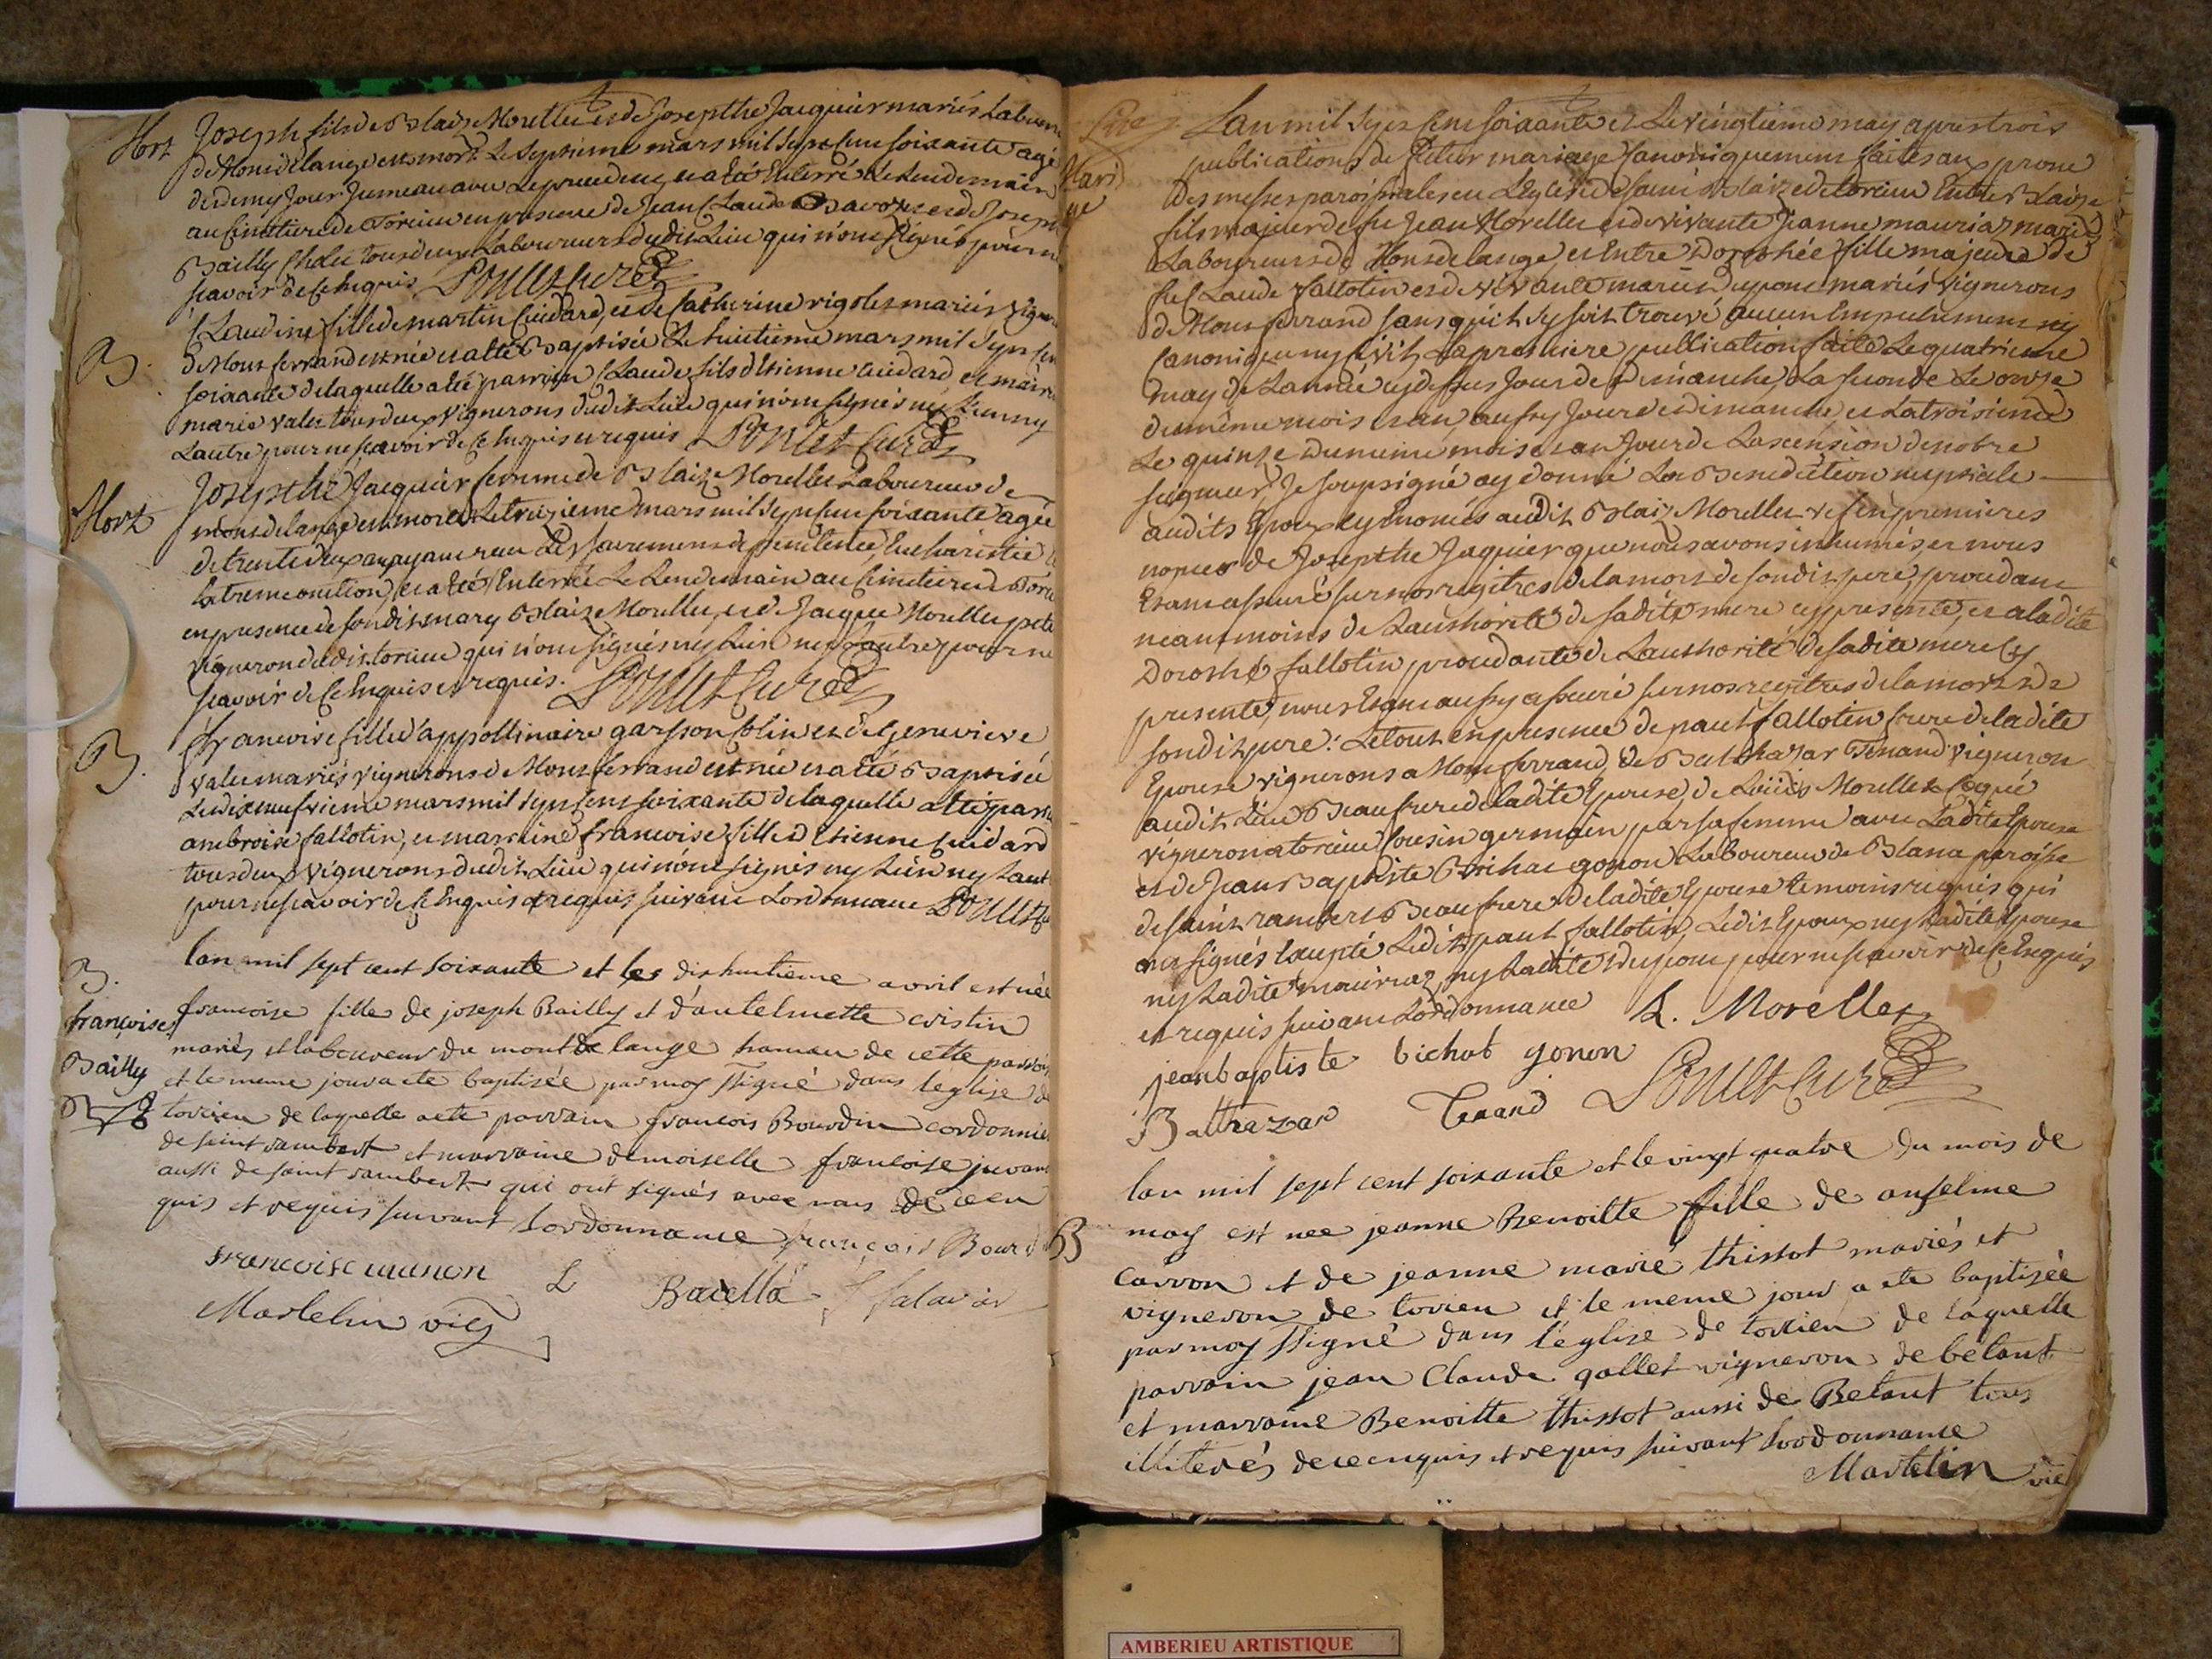 Mort
Joseph fils de Blaize Morellet et de Josepthe Jacquier mariés Labour
de Montdelange est mort Le septieme mars mil sept cent soixante agé
de demy Jour Jumeau avec Le precedent, et a été Enterré Le Lendemain
au Cimetiere de Torcieu en presence de Jean Claude et de Joseph
Bailly tous deux Laboureurs dudit Lieu qui n'ont signés pour n
scavoir de ce Enquis Curé
B.
Claudine fille de martin Cuidard, et de Catherine rigolet mariés Vigner
de Montferrand est née et a été Baptisée Le huitieme mars mil sept cen
soixante de laquelle a été parrain Claude fils d'Etienne Cuidard et marr
marie valet tous deux vignerons dudit Lieu qui n'ont signés ny L'un ny
L'autre pour ne scavoir de ce Enquis et requis Curé
Mort
Josepthe Jacquier femme de Blaize Morellet Laboureur de
montdelange est morte Le treizieme mars mil sept cent soixante agée
de trente deux ans ayant recu Les sacremens de penitence, Eucharistie
Extremeonction, et a été Enterrée Le Lendemain au Cimetiere de Torc
en presence de sondit mary Blaize Morellet, et de Jacque Morellet
vigneron dudit torcieu qui n'ont signés ny L'un ny L'autre pour ne
scavoir de ce Enquis et requis. Curé
B.
francoise fille d'appollinaire garsson Colin et de Genevieve
valet mariés vignerons de Montferrand est née et a été Baptisée
Le dixneufvieme mars mil sept cens soixante de laquelle a été parr
ambroise fallotin, et marraine francoise fille d'Etienne Cuidard
tous deux vignerons dudit Lieu qui n'ont signés ny L'un ny L'aut
pour ne scavoir de ce Enquis et requis suivant Lordonnance
B.
françoise
Bailly
lan mil sept cent soixante et les dix huitieme avril est née
francoise fille de joseph Bailly et d'antelmette cristin
mariés et laboureur du mont de lange hameau de cette paroi
et le meme jour a ete baptisée par moy ssigné dans leglise de
torcieu de laquelle a ete parrain francois Bourdin cordonnier
de saint rambert et marraine demoiselle francoise juvan
aussi de saint rambert qui ont signés avec nous de ce en
quis et requis suivant lordonnance françois Bourd
francoise
L Bacella
Martelin vic
Mari
ge
Lan mil sept cent soixante et Le vingtieme may apres trois
publications de futur mariage Canoniquement faites aux prone
des messes paroissiales en L'Eglise de saint Blaize de torcieu Entre Blaize
fils majeur de fu Jean Morellet et de vivante Jeanne mauriaz mariés
Laboureurs de Montdelange, et Entre Dorothée fille majeure de
fu Claude fallotin et de vivante mariés vignerons
de Montferrand sans qu'il s'y soit trouvé aucun Empechement ny
Canonique ny Civil, La premiere publication faite Le quatrieme
may de Lannée cydessus Jour de dimanche, La seconde Le onze
du même mois et an, aussy Jour de dimanche, et La troisieme
Le quinze du meme mois et an Jour de Lascension de notre
seigneur, Je soussigné ay donné La Benediction nuptiale
audits Epoux cy només audit Blaize Morellet vef en premieres
noces de Josepthe Jaquier que nous avons inhumés et nous
Etant assuré sur nos regitres de la mort de sondit pere, procedant
neantmoins de L'authorité de sadite mere cy presente, et a ladite
Dorothé fallotin procedante de Lauthorité de sadite mere cy
presente, nous Etant aussy assuré sur nos regitres de la mort de
sondit pere: Le tout en presence de paul fallotin frere de ladite
Epouse vignerons a Montferrand, de Balthazar Tenand vigneron
audit Lieu Beaufrere de ladite Epouse, de Loüis Morellet
vigneron a torcieu Cousin germain par sa femme avec Ladite Epouse
et de Jean Baptiste Bichat gonon Laboureur de Blana paroisse
de saint rambert Beaufrere de ladite Epouse temoins requis qui
ont signés Excepté Ledit paul fallotin, Ledit Epoux ny Ladite Epouse
ny Ladite mauriaz, ny Ladite pour ne scavoir de ce Enquis
et requis suivant Lordonnance L. Morellet
jean baptiste bichat gonon
Balthazar Tenand Curé
B
lan mil sept cent soixante et le vingt quatre du mois de
may est nee jeanne Benoitte fille de anselme
carron et de jeanne marie thissot mariés et
vigneron de torcieu et le meme jour a ete baptisée
par moy ssigné dans l'église de torcieu de laquelle
parrain jean Claude gallet vigneron de betant
et marraine Benoitte thissot aussi de Betant tous
illiterés de ce enquis et requis suivant lordonnance
Martelin vic
AMBERIEU ARTISTIQUE